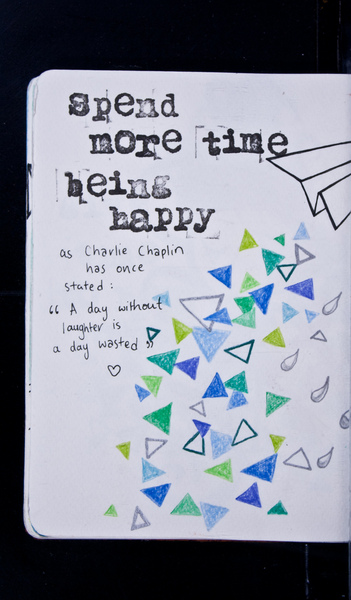 spend
more time
being
happy
as Charlie Chaplin
has once
stated :
“ A day without
laughter is
a day wasted ”